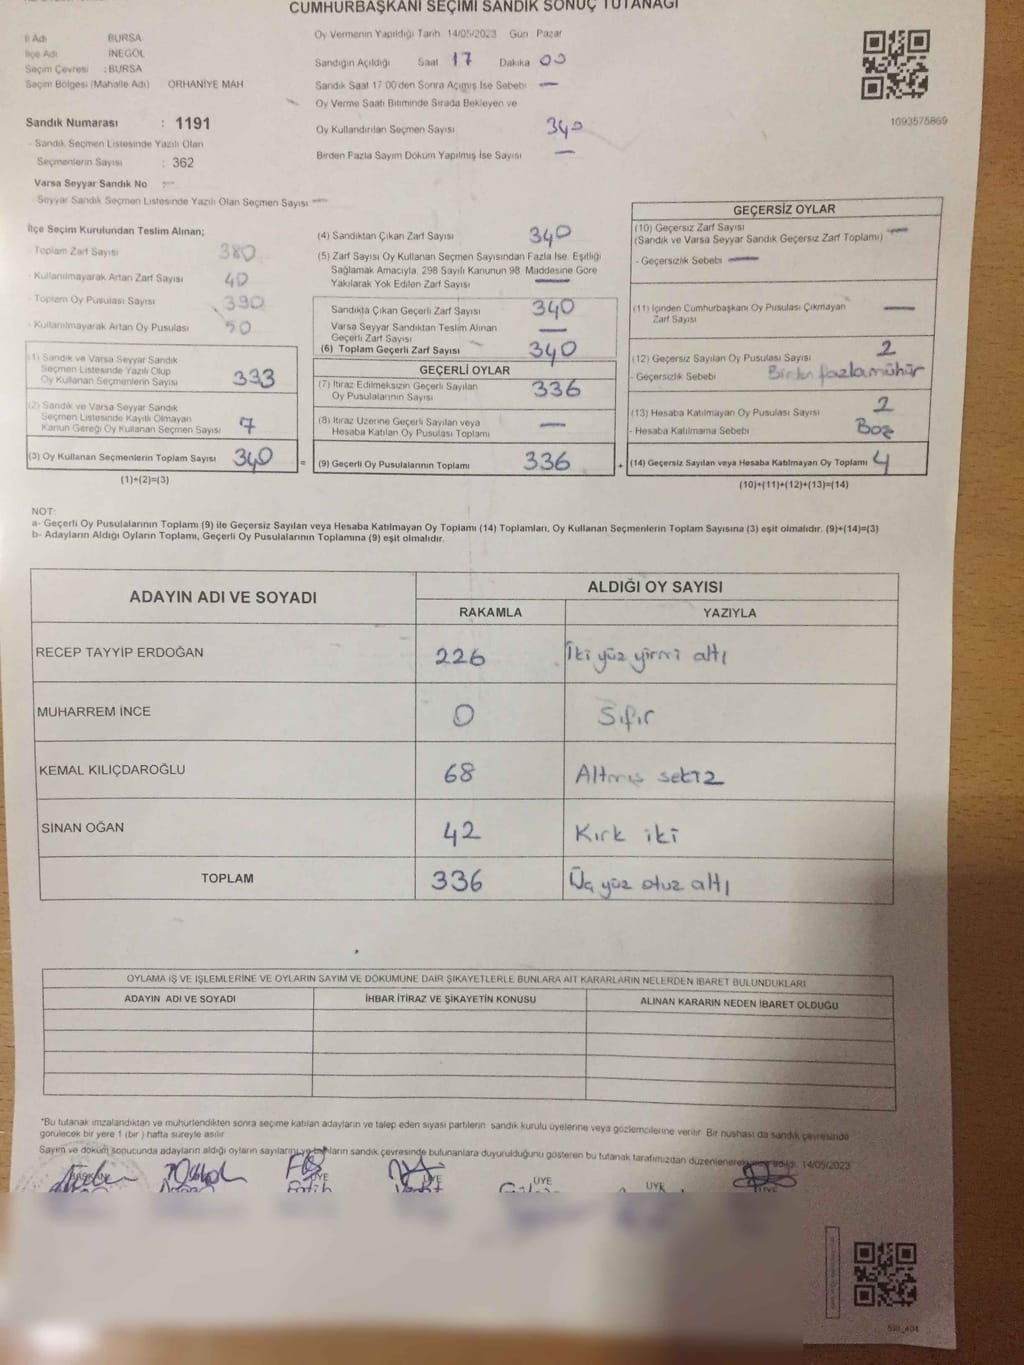 CUMHURBAŞKANI SEÇİMİ SANDIK SONUÇ TUTANAĞI
İl Adı BURSA
İlçe Adı İNEGÖL
Seçim Çevresi : BURSA
Seçim Bölgesi (Mahalle Adı) ORHANİYE MAH
Sandık Numarası : 1191
- Sandık Seçmen Listesinde Yazılı Olan
Seçmenlerin Sayısı : 362
Varsa Seyyar Sandık No : —
- Seyyar Sandık Seçmen Listesinde Yazılı Olan Seçmen Sayısı : —
Oy Vermenin Yapıldığı Tarih 14/05/2023 Gün Pazar
Sandığın Açıldığı Saat 17 Dakika 00
Sandık Saat 17 00'den Sonra Açılmış İse Sebebi —
Oy Verme Saati Bitiminde Sırada Bekleyen ve
Oy Kullandırılan Seçmen Sayısı 340
Birden Fazla Sayım Döküm Yapılmış İse Sayısı —
1093575869
İlçe Seçim Kurulundan Teslim Alınan;
- Toplam Zarf Sayısı 380
- Kullanılmayarak Artan Zarf Sayısı 40
- Toplam Oy Pusulası Sayısı 390
- Kullanılmayarak Artan Oy Pusulası 50
(1) Sandık ve Varsa Seyyar Sandık
Seçmen Listesinde Yazılı Olup
Oy Kullanan Seçmenlerin Sayısı 333
(2) Sandık ve Varsa Seyyar Sandık
Seçmen Listesinde Kayıtlı Olmayan
Kanun Gereği Oy Kullanan Seçmen Sayısı 7
(3) Oy Kullanan Seçmenlerin Toplam Sayısı 340 =
(1)+(2)=(3)
(4) Sandıktan Çıkan Zarf Sayısı 340
(5) Zarf Sayısı Oy Kullanan Seçmen Sayısından Fazla İse, Eşitliği
Sağlamak Amacıyla, 298 Sayılı Kanunun 98. Maddesine Göre
Yakılarak Yok Edilen Zarf Sayısı —
Sandıkta Çıkan Geçerli Zarf Sayısı 340
Varsa Seyyar Sandıktan Teslim Alınan
Geçerli Zarf Sayısı —
(6) Toplam Geçerli Zarf Sayısı 340
GEÇERLİ OYLAR
(7) İtiraz Edilmeksizin Geçerli Sayılan
Oy Pusulalarının Sayısı 336
(8) İtiraz Üzerine Geçerli Sayılan veya
Hesaba Katılan Oy Pusulası Toplamı —
(9) Geçerli Oy Pusulalarının Toplamı 336 +
GEÇERSİZ OYLAR
(10) Geçersiz Zarf Sayısı —
(Sandık ve Varsa Seyyar Sandık Geçersiz Zarf Toplamı)
- Geçersizlik Sebebi —
(11) İçinden Cumhurbaşkanı Oy Pusulası Çıkmayan
Zarf Sayısı —
(12) Geçersiz Sayılan Oy Pusulası Sayısı 2
- Geçersizlik Sebebi Birden fazla mühür
(13) Hesaba Katılmayan Oy Pusulası Sayısı 2
- Hesaba Katılmama Sebebi Boş
(14) Geçersiz Sayılan veya Hesaba Katılmayan Oy Toplamı 4
(10)+(11)+(12)+(13)=(14)
NOT:
a- Geçerli Oy Pusulalarının Toplamı (9) ile Geçersiz Sayılan veya Hesaba Katılmayan Oy Toplamı (14) Toplamları, Oy Kullanan Seçmenlerin Toplam Sayısına (3) eşit olmalıdır. (9)+(14)=(3)
b- Adayların Aldığı Oyların Toplamı, Geçerli Oy Pusulalarının Toplamına (9) eşit olmalıdır.
ADAYIN ADI VE SOYADI ALDIĞI OY SAYISI
RAKAMLA YAZIYLA
RECEP TAYYİP ERDOĞAN 226 İki yüz yirmi altı
MUHARREM İNCE 0 Sıfır
KEMAL KILIÇDAROĞLU 68 Altmış sekiz
SİNAN OĞAN 42 Kırk iki
TOPLAM 336 Üç yüz otuz altı
OYLAMA İŞ VE İŞLEMLERİNE VE OYLARIN SAYIM VE DÖKÜMÜNE DAİR ŞİKAYETLERLE BUNLARA AİT KARARLARIN NELERDEN İBARET BULUNDUKLARI
ADAYIN ADI VE SOYADI İHBAR İTİRAZ VE ŞİKAYETİN KONUSU ALINAN KARARIN NEDEN İBARET OLDUĞU
*Bu tutanak imzalandıktan ve mühürlendikten sonra seçime katılan adayların ve talep eden siyasi partilerin sandık kurulu üyelerine veya gözlemcilerine verilir. Bir nüshası da sandık çevresinde
görülecek bir yere 1 (bir) hafta süreyle asılır
Sayım ve döküm sonucunda adayların aldığı oyların sayılarını ve bunların sandık çevresinde bulunanlara duyurulduğunu gösteren bu tutanak tarafımızdan düzenlenerek 14/05/2023
BAŞKAN ÜYE ÜYE ÜYE ÜYE
Fatih